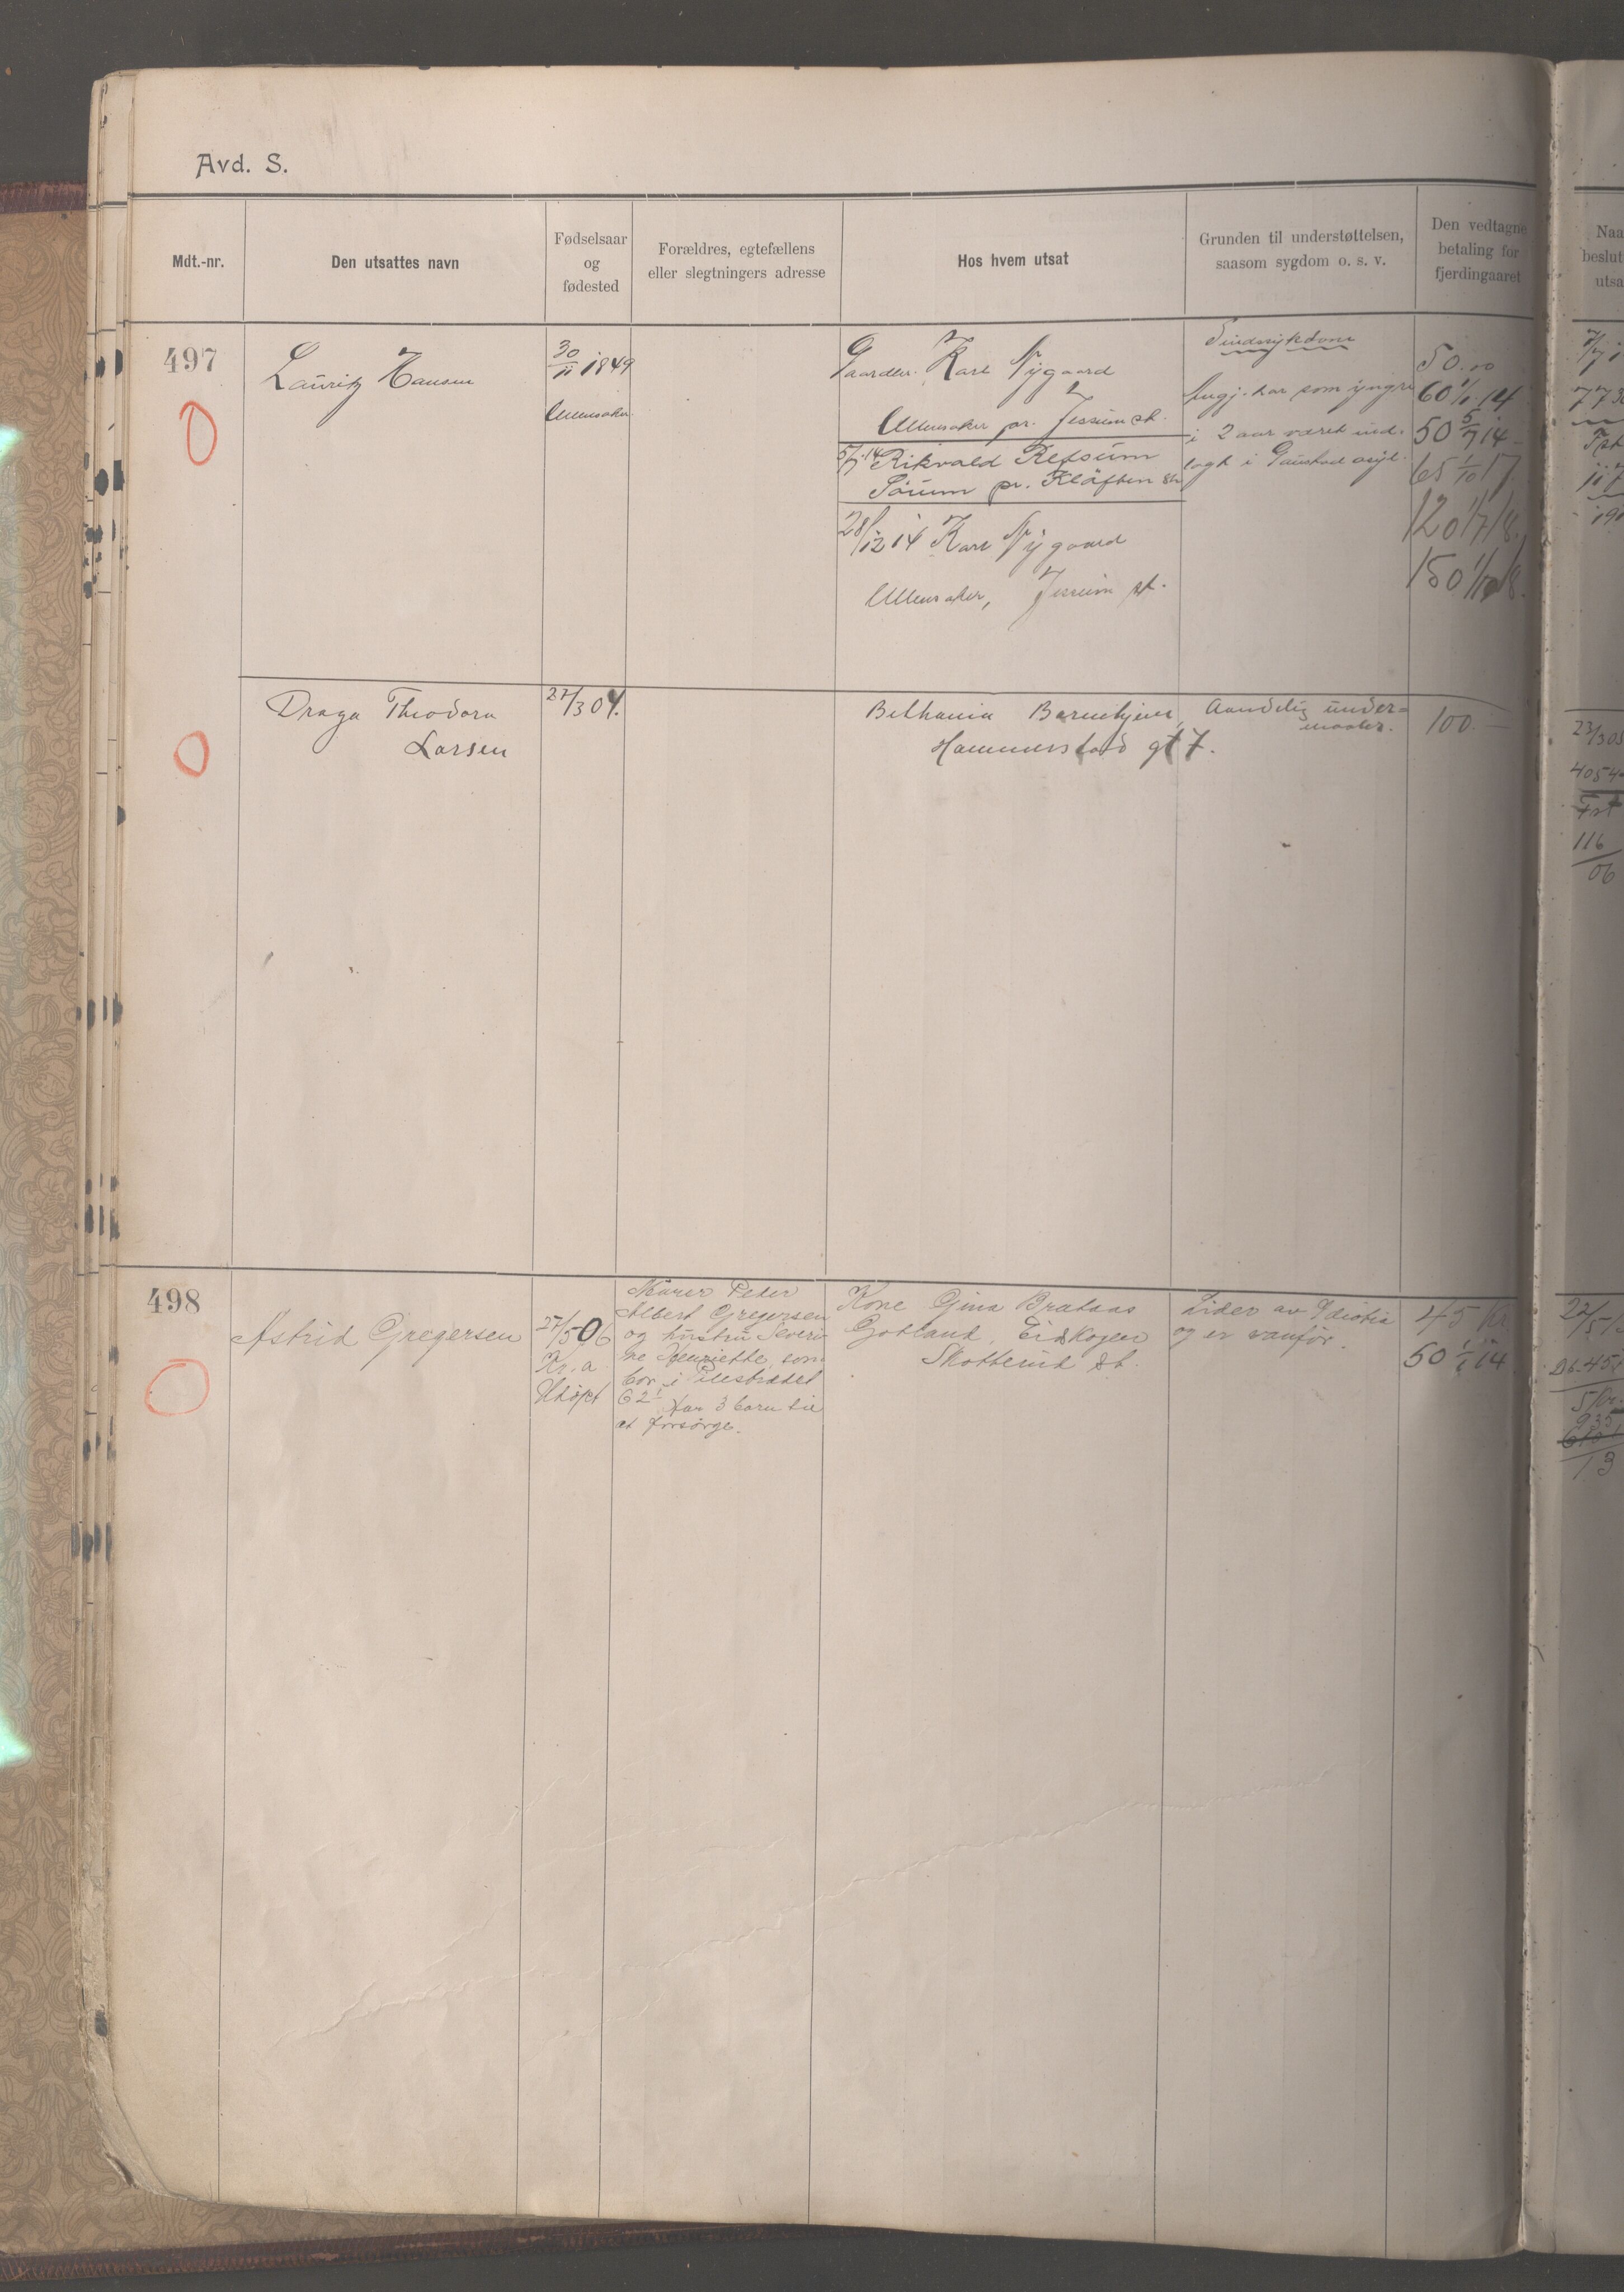 Avd. S.
Mdt.-nr.
Den utsattes navn
Fødselsaar
og
fødested
Forældres, egtefællens
eller slegtningers adresse
Hos hvem utsat
Grunden til understøttelsen,
saasom sygdom o. s. v.
Den vedtagne
betaling for
fjerdingaaret
497
Lauritz Hansen
30/11 1849
Ullensaker
Gaardbr. Karl Nygaard
Ullensaker pr. Jessum st.
5/7 14 Rikvald Refsum
Sørum pr. Kløften st.
28/12 14 Karl Nygaard
Ullensaker, Jessum st.
Sindssykdom
har som yngre
i 2 aar været ind-
lagt i Gaustad asyl.
50.00
60 1/1 14
50 5/7 14
65 1/10 17
120 1/7 18.
150 1/10 18.
Draga Theodora
Larsen
27/3 04.
Bethania Barnehjem,
Hammerstad gt 7.
Aandelig under-
maaler.
100.—
498
Astrid Gregersen
27/5 06
Kr.a
Udøpt
Murer Peter
Albert Gregersen
og hustru Severi-
ne Henriette, som
bor i Pilestrædet
62 har 3 barn til
at forsørge.
Kone Gina Brataas
Gotland, Eidskogen
Skotterud st.
Lider av Idiotia
og er vanfør.
45 Kr
50 1/1 14
Naa
beslut
utsa
23/3 05
4054
Fst
116
06
22/5
5 Kr.
935
13